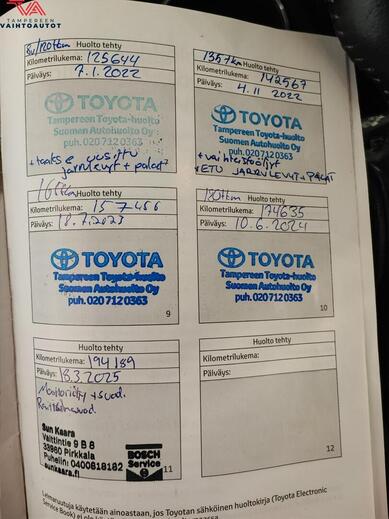 TAMPEREEN
VAIHTOAUTOT
8v/120tkm Huolto tehty
Kilometrilukema: 125644
Päiväys: 7.1.2022
TOYOTA
Tampereen Toyota-huolto
Suomen Autohuolto Oy
puh.0207120363
+takse uusittu
jarrulevyt+palat
135tkm Huolto tehty
Kilometrilukema: 142567
Päiväys: 4.11 2022
TOYOTA
Tampereen Toyota-huolto
Suomen Autohuolto Oy
puh.0207120363
+vaihteistoöljyt
+ETU JARRULEVYT+PALAT
Huolto tehty
Kilometrilukema: 157466
Päiväys: 18.7.2023
TOYOTA
Tampereen Toyota-huolto
Suomen Autohuolto Oy
puh. 0207120363
9
180tkm Huolto tehty
Kilometrilukema: 174635
Päiväys: 10.6.2024
TOYOTA
Tampereen Toyota-huolto
Suomen Autohuolto Oy
puh. 0207120363
10
Huolto tehty
Kilometrilukema: 194189
Päiväys: 18.3.2025
Moottoriöljy + suod.
Sun Kaara
Valttintie 9 B 8
33960 Pirkkala
Puhelin: 0400618182
sunkaara.fi
BOSCH
Service
11
Huolto tehty
Kilometrilukema:
Päiväys:
12
Leimaruutuja käytetään ainoastaan, jos Toyotan sähköinen huoltokirja (Toyota Electronic
Service Book) ei ole